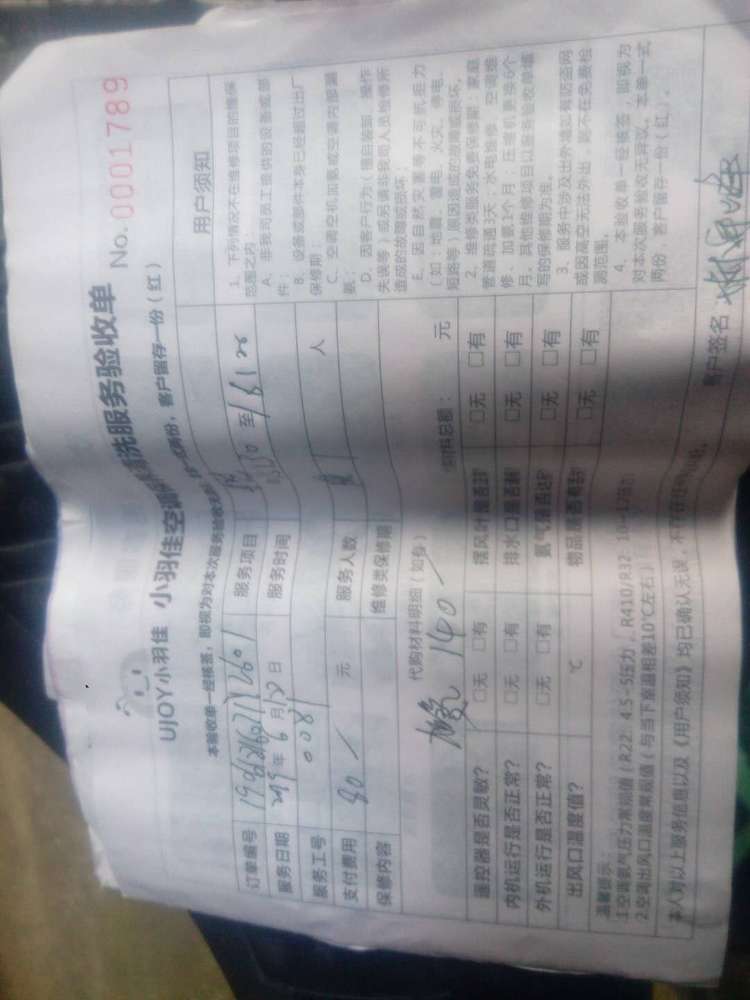 UJOY小羽佳 小羽佳空调 清洗服务验收单 No. 0001789
本验收单一经核签，即视为对本次服务验收 份，客户留存一份（红）
订单编号 服务项目
服务日期 2019 年 6 月 日 服务时间 至
服务工号 008
支付费用 80 元 服务人数 人
保修内容 维修类保修期
代购材料明细（如有） 材料总额： 元
加氨 140
遥控器是否灵敏? □无 □有 摆风叶是否 □无 □有
内机运行是否正常? □无 □有 排水口是否 □无 □有
外机运行是否正常? □无 □有 氨气是否 □无 □有
出风口温度值? ℃ 物品是否 □无 □有
用户须知
1、下列情况不在维修项目的维保
范围之内：
A、非我司员工提供的设备或部
件；
B、设备或部件本身已经超过出厂
保修期；
C、空调空机加氨或空调内部漏
氨；
D、因客户行为（擅自装卸、操作
失误等）或另请非我司人员检修所
造成的故障或损坏；
E、因自然灾害等不可抗拒力
（如：地震、雷电、火灾、停电、
短路等）原因造成的故障或损坏。
2、维修类服务免费保修期：家庭
管道疏通3天；水电维修、空调维
修、加氨1个月；压缩机更换6个
月，其他维修项目以服务验收单填
写的保修期为准。
3、服务中涉及出外墙如有防盗网
或因高空无法外出，则不在免费检
测范围。
4、本验收单一经核签，即视为
对本次服务验收无异议。本单一式
两份，客户留存一份（红）。
温馨提示：
1.空调氨气压力常规值（R22: 4.5-5压力，R410/R32: 10-12压力）
2.空调出风口温度常规值（与当下室温相差10℃左右）
本人对以上服务信息以及《用户须知》均已确认无误，不存在任何
客户签名：